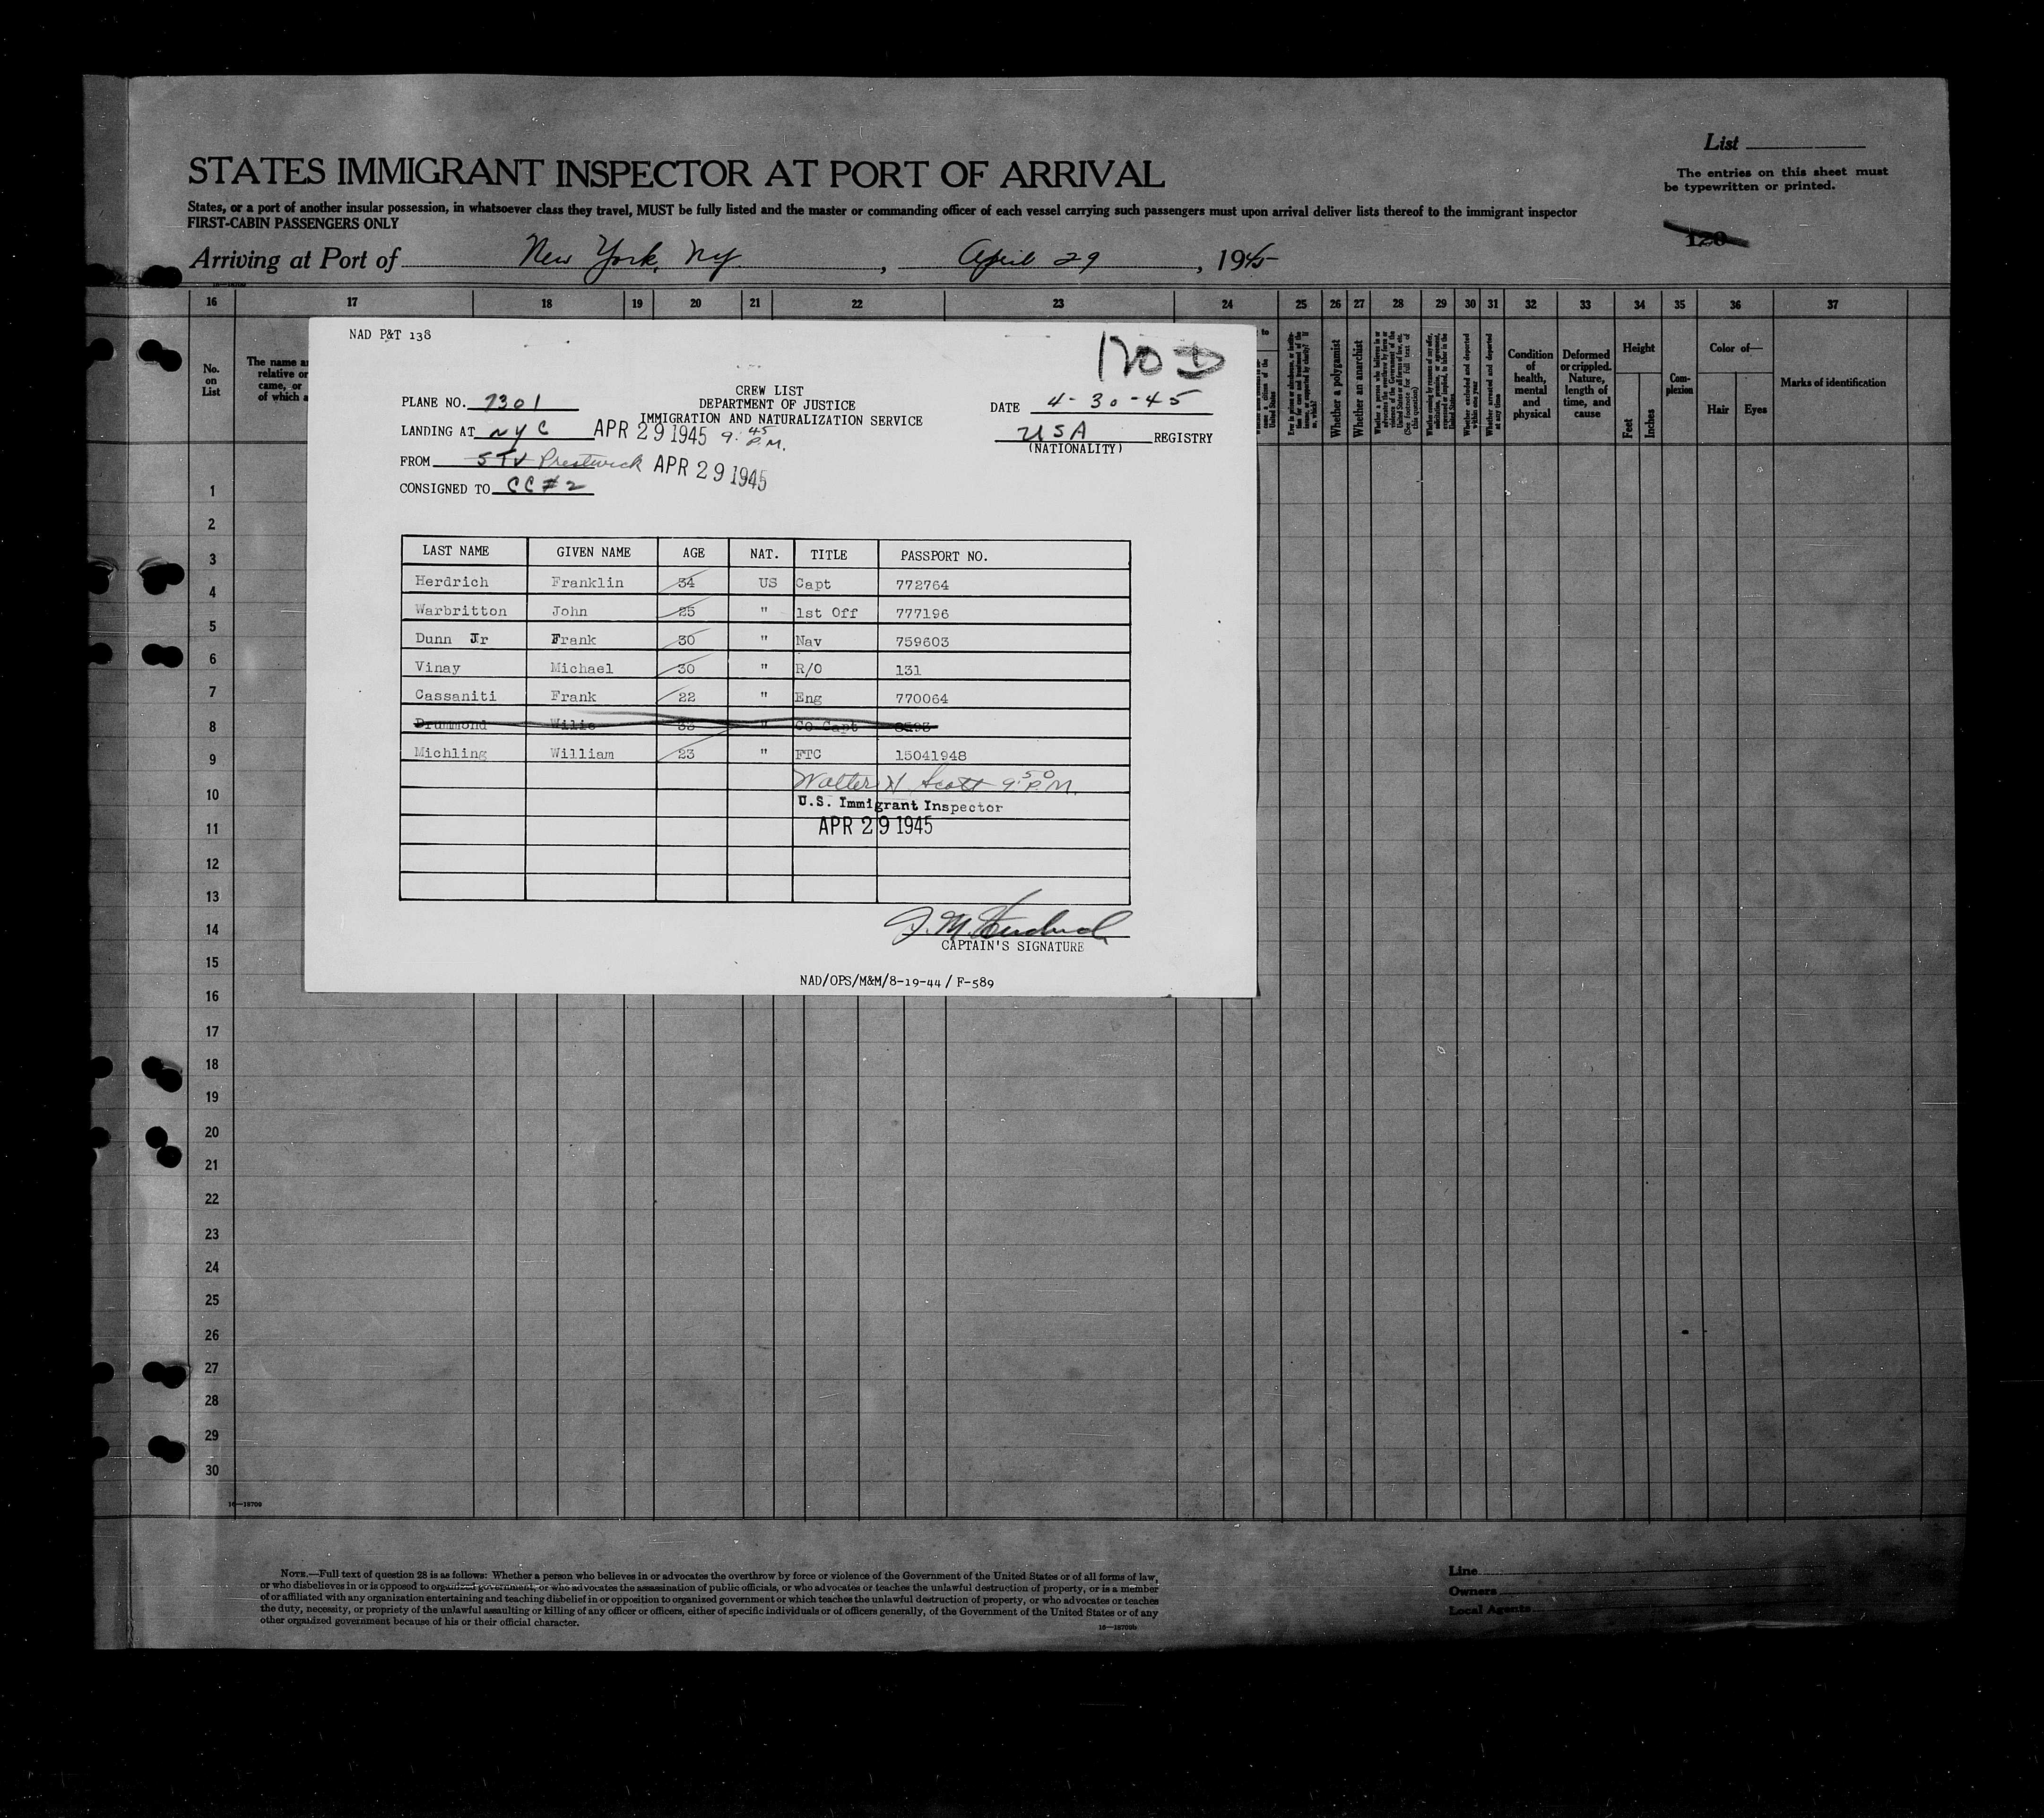 List
STATES IMMIGRANT INSPECTOR AT PORT OF ARRIVAL
The entries on this sheet must
be typewritten or printed.
States, or a port of another insular possession, in whatsoever class they travel, MUST be fully listed and the master or commanding officer of each vessel carrying such passengers must upon arrival deliver lists thereof to the immigrant inspector
FIRST-CABIN PASSENGERS ONLY
120
Arriving at Port of New York, Ny, April 29, 1945
16 17 18 19 20 21 22 23 24 25 26 27 28 29 30 31 32 33 34 35 36 37
No. on List
The name a
relative or
came, or
of which a
Whether a polygamist
Whether an anarchist
Condition of health, mental and physical
Deformed or crippled. Nature, length of time, and cause
Height
Feet
Inches
Com-plexion
Color of—
Hair
Eyes
Marks of identification
NAD P&T 138
120 D
CREW LIST
PLANE NO. 7301
DEPARTMENT OF JUSTICE
DATE 4-30-45
IMMIGRATION AND NATURALIZATION SERVICE
LANDING AT NYC APR 29 1945 9:45 P.M.
USA REGISTRY
(NATIONALITY)
FROM STV Prestwick APR 29 1945
CONSIGNED TO CC#2
LAST NAME GIVEN NAME AGE NAT. TITLE PASSPORT NO.
Herdrich Franklin 34 US Capt 772764
Warbritton John 25 " 1st Off 777196
Dunn Jr Frank 30 " Nav 759603
Vinay Michael 30 " R/O 131
Cassaniti Frank 22 " Eng 770064
Drummond Wilie 33 " Co Capt
Michling William 23 " FTC 15041948
Walter N Scott 9:50 P.M.
U.S. Immigrant Inspector
APR 29 1945
F. M. Herdrich
CAPTAIN'S SIGNATURE
NAD/OPS/M&M/8-19-44 / F-589
1
2
3
4
5
6
7
8
9
10
11
12
13
14
15
16
17
18
19
20
21
22
23
24
25
26
27
28
29
30
16—18709
NOTE.—Full text of question 28 is as follows: Whether a person who believes in or advocates the overthrow by force or violence of the Government of the United States or of all forms of law,
or who disbelieves in or is opposed to organized government, or who advocates the assassination of public officials, or who advocates or teaches the unlawful destruction of property, or is a member
of or affiliated with any organization entertaining and teaching disbelief in or opposition to organized government or which teaches the unlawful destruction of property, or who advocates or teaches
the duty, necessity, or propriety of the unlawful assaulting or killing of any officer or officers, either of specific individuals or of officers generally, of the Government of the United States or of any
other organized government because of his or their official character.
Line
Owners
Local Agents